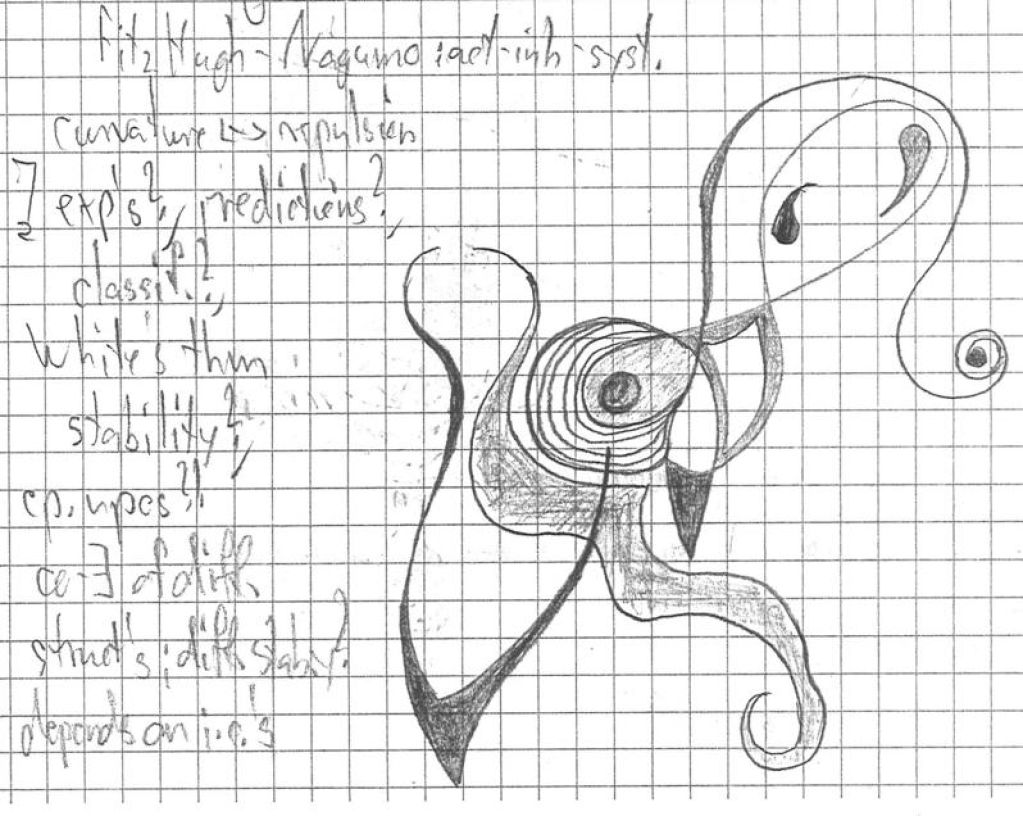 FitzHugh-Nagumo: act-inh-syst.
curvature ↔ repulsion
∃ exp's?, predictions?,
classif.?,
White's thm
stability?,
cp. npcs?!
co-∃ of diff.
struct's; diff. stabty?
depends on i.c.'s